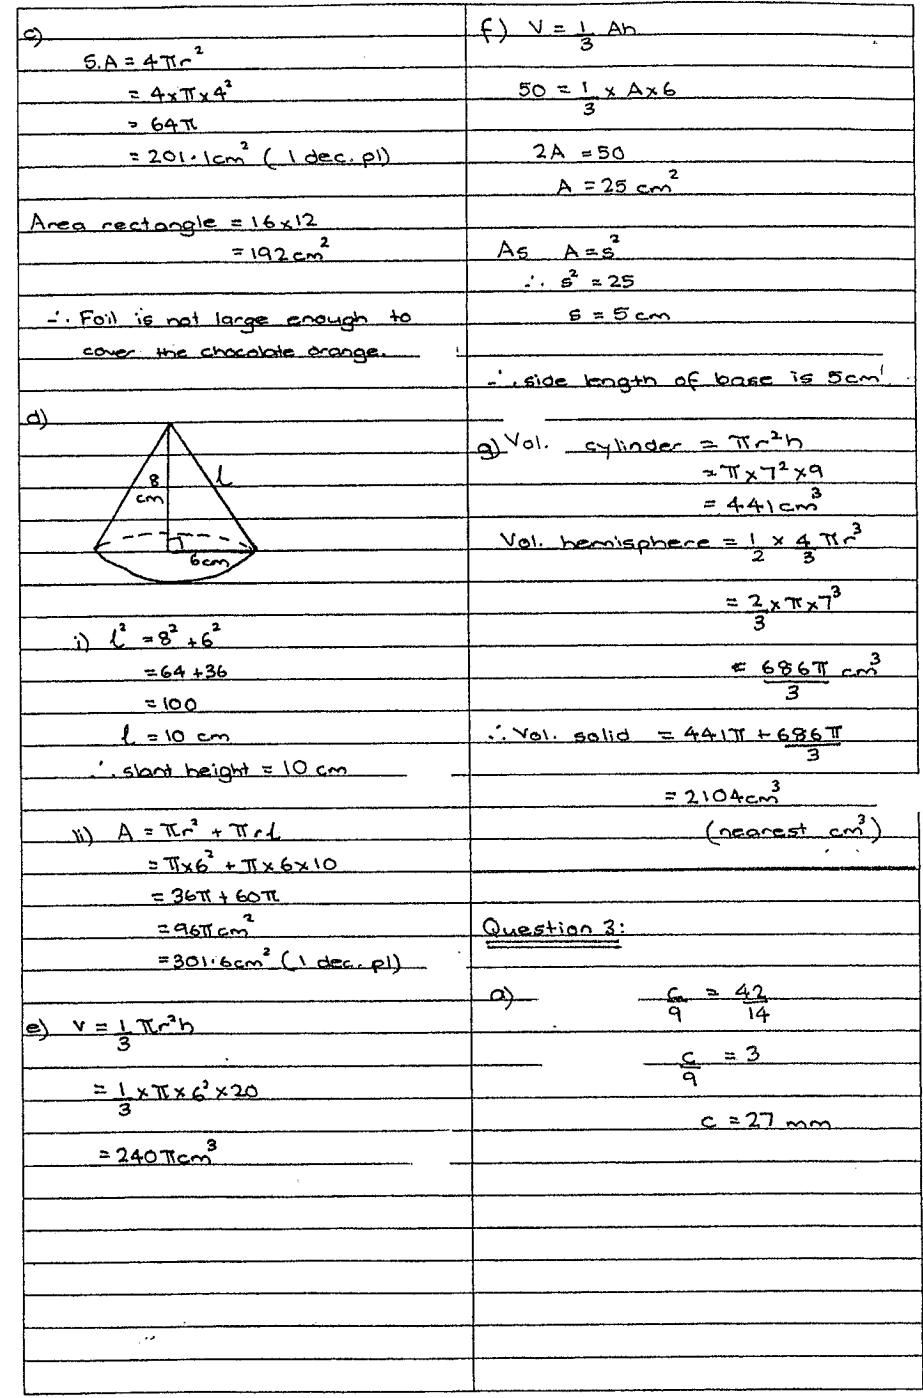 c)
S.A = 4πr²
= 4×π×4²
= 64π
= 201.1cm² (1 dec. pl)
Area rectangle = 16×12
= 192cm²
∴ Foil is not large enough to
cover the chocolate orange.
d)
8
cm
l
6cm
i) l² = 8² + 6²
= 64 + 36
= 100
l = 10 cm
∴ slant height = 10 cm
ii) A = πr² + πrl
= π×6² + π×6×10
= 36π + 60π
= 96π cm²
= 301.6cm² (1 dec. pl)
e) V = 1/3 πr²h
= 1/3 × π × 6² × 20
= 240π cm³
f) V = 1/3 Ah
50 = 1/3 × A × 6
2A = 50
A = 25 cm²
As A = s²
∴ s² = 25
s = 5 cm
∴ side length of base is 5cm
g) Vol. cylinder = πr²h
= π × 7² × 9
= 441cm³
Vol. hemisphere = 1/2 × 4/3 πr³
= 2/3 × π × 7³
= 686π/3 cm³
∴ Vol. solid = 441π + 686π/3
= 2104cm³
(nearest cm³)
Question 3:
a) c/9 = 42/14
c/9 = 3
c = 27 mm